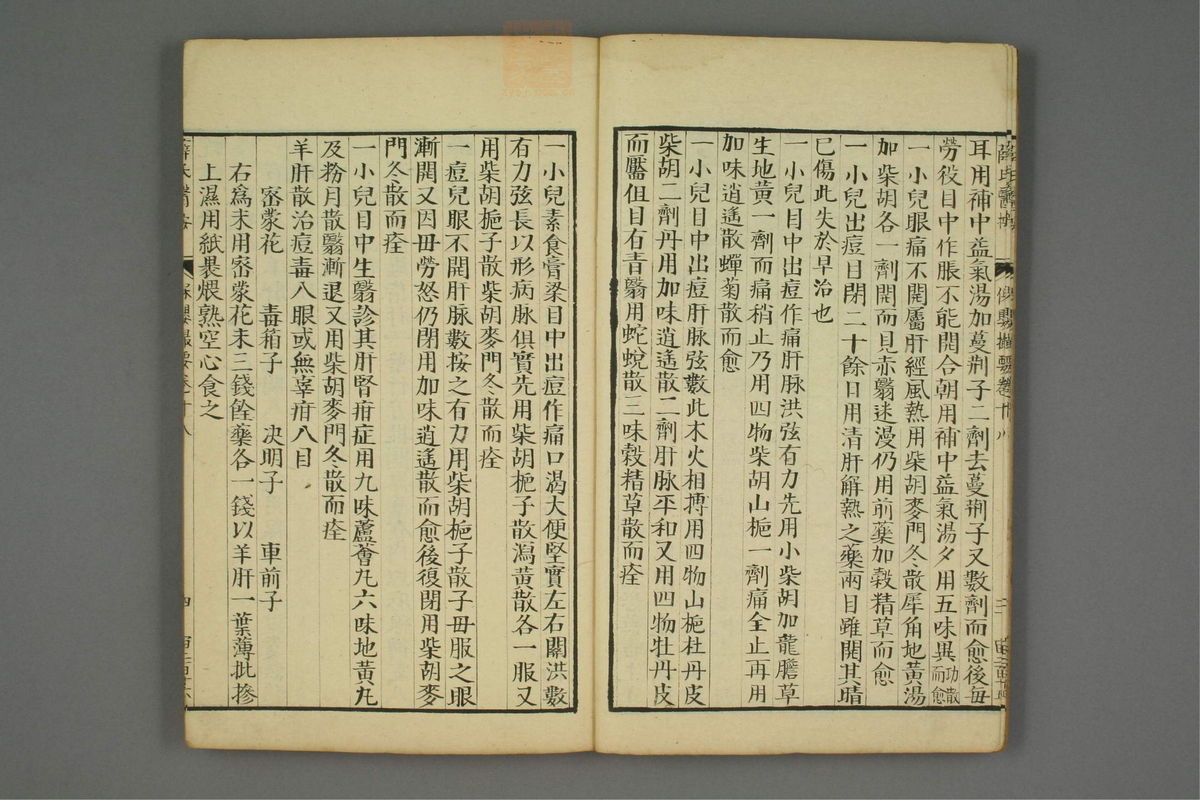 耳用補中益氣湯加蔓荊子二劑去蔓荊子又數劑而愈後每
勞役目中作脹不能開合朝用補中益氣湯夕用五味異功散而愈
一小兒眼痛不開屬肝經風熱用柴胡麥門冬散犀角地黃湯
加柴胡各一劑開而見赤翳迷漫仍用前藥加穀精草而愈
一小兒出痘目閉二十餘日用清肝解熱之藥兩目雖開其睛
已傷此失於早治也
一小兒目中出痘作痛肝脉洪弦有力先用小柴胡加龍膽草
生地黃一劑而痛稍止乃用四物柴胡山梔一劑痛全止再用
加味逍遙散蟬菊散而愈
一小兒目中出痘肝脉弦數此木火相搏用四物山梔杜丹皮
柴胡二劑丹用加味逍遙散二劑肝脉平和又用四物牡丹皮
而靨但目右青翳用蛇蛻散三味穀精草散而痊
一小兒素食膏梁目中出痘作痛口渴大便堅實左右關洪數
有力弦長以形病脉俱實先用柴胡梔子散瀉黃散各一服又
用柴胡梔子散柴胡麥門冬散而痊
一痘兒眼不開肝脉數按之有力用柴胡梔子散子母服之眼
漸開又因毋勞怒仍閉用加味逍遙散而愈後復閉用柴胡麥
門冬散而痊
一小兒目中生翳診其肝腎疳症用九味蘆薈丸六味地黃丸
及粉月散翳漸退又用柴胡麥門冬散而痊
羊肝散治痘毒入眼或無辜疳入目
密蒙花 青箱子 决明子 車前子
右爲末用密蒙花末三錢餘藥各一錢以羊肝一葉薄批摻
上濕用紙褁煨熟空心食之